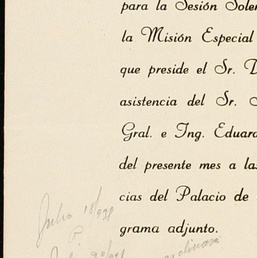 para la Sesión Solem
la Misión Especial
que preside el Sr. D
asistencia del Sr.
Gral. e Ing. Eduar
del presente mes a las
cias del Palacio de
grama adjunto.
Julio